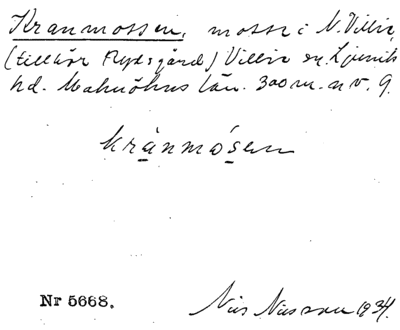 Kranmossen, mosse i N. Villie,
(tillhör Rydsgård) Villie sn. Ljunits
hd. Malmöhus län. 300 m. n v. 9.
kránmósen
Nr 5668.
Nils Nilsson 1934.